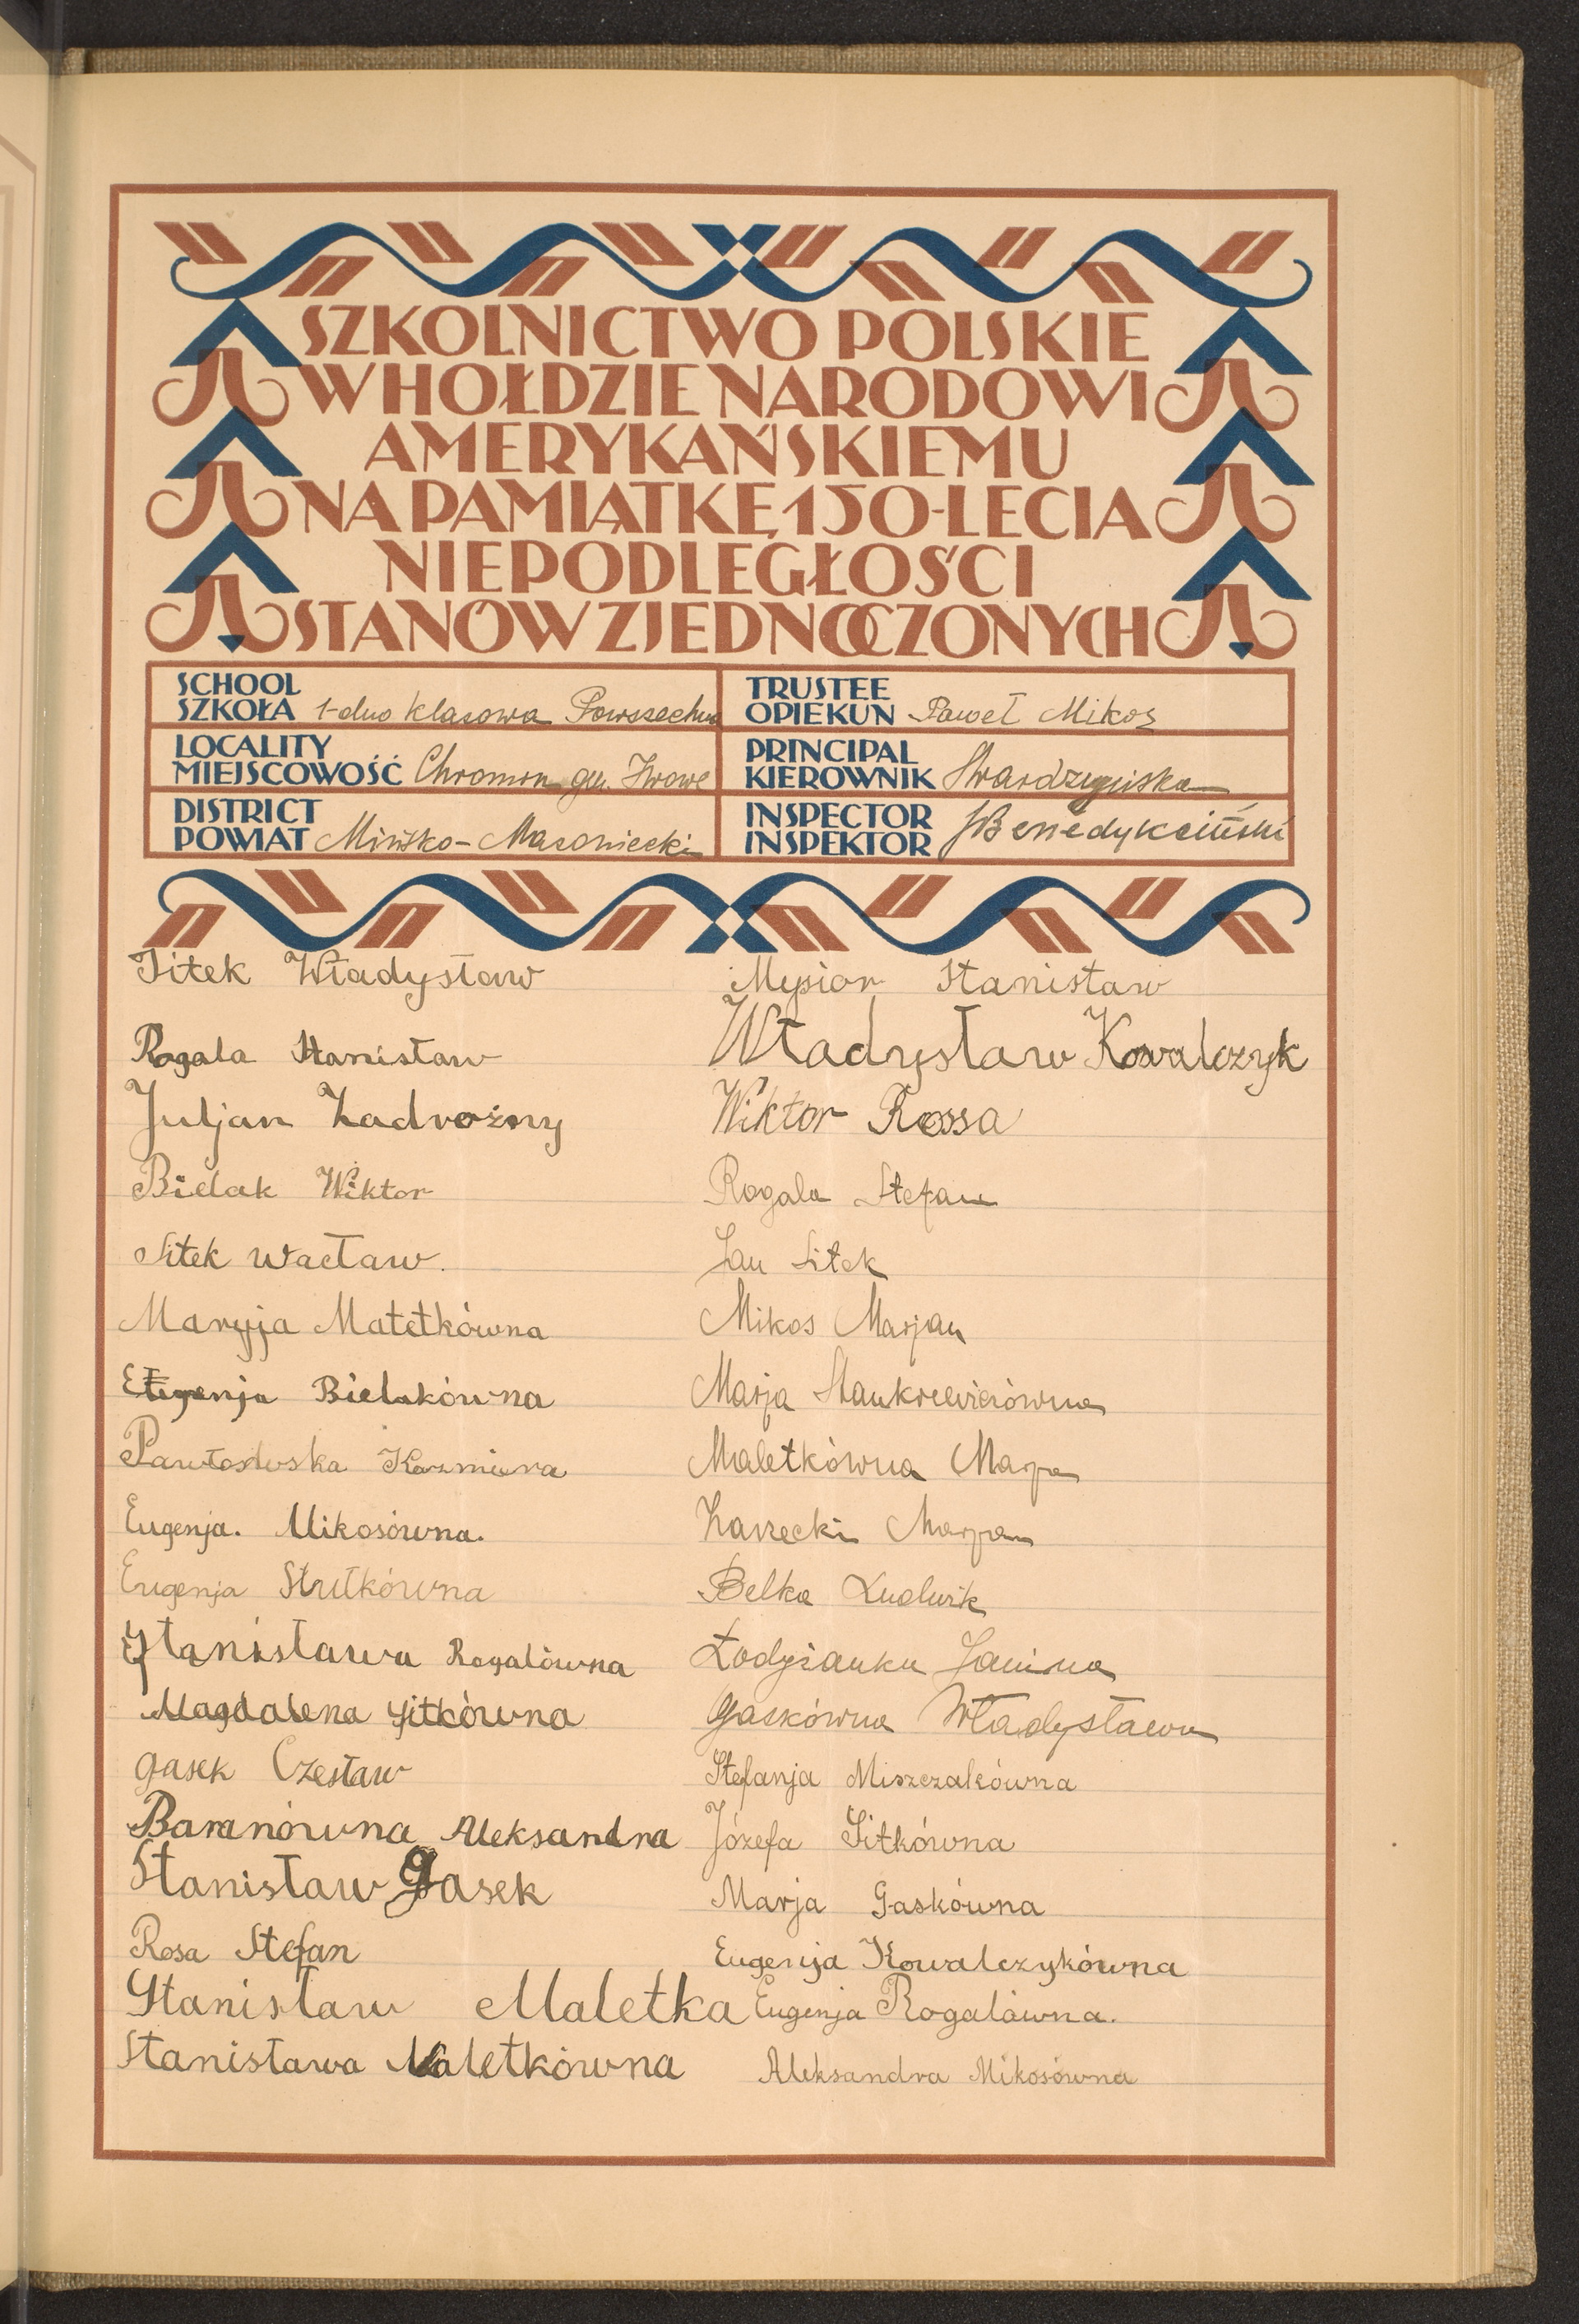 SZKOLNICTWO POLSKIE
W HOŁDZIE NARODOWI
AMERYKAŃSKIEMU
NA PAMIĄTKĘ 150-LECIA
NIEPODLEGŁOŚCI
STANÓW ZJEDNOCZONYCH
SCHOOL
SZKOŁA 1-dno klasowa Powszechna
TRUSTEE
OPIEKUN Paweł Mikos
LOCALITY
MIEJSCOWOŚĆ Chromin gm. Iwowe
PRINCIPAL
KIEROWNIK Swardzyńska
DISTRICT
POWIAT Mińsko-Mazowiecki
INSPECTOR
INSPEKTOR Benedykciński
Sitek Władysław
Rogala Stanisław
Juljan Zadrożny
Bielak Wiktor
Sitek Wacław.
Maryja Matetkówna
Eugenja Bielakówna
Pawłoswska Kazmiera
Eugenja. Mikosówna.
Eugenja Strutkówna
Stanisława Rogalówna
Magdalena Sitkówna
Gasek Czesław
Baranówna Aleksandra
Stanisław Gasek
Rosa Stefan
Stanisław Maletka
Stanisława Maletkówna
Mysior Stanisław
Władysław Kowalczyk
Wiktor Rossa
Rogala Stefan
Jan Sitek
Mikos Marjan
Marja Stankiewiczówna
Maletkówna Marja
Zarzecki Marjan
Belka Ludwik
Łodyżanka Janina
Gaskówna Władysława
Stefanja Miszczakówna
Józefa Sitkówna
Marja Gaskówna
Eugenja Kowalczykówna
Eugenja Rogalówna.
Aleksandra Mikosówna